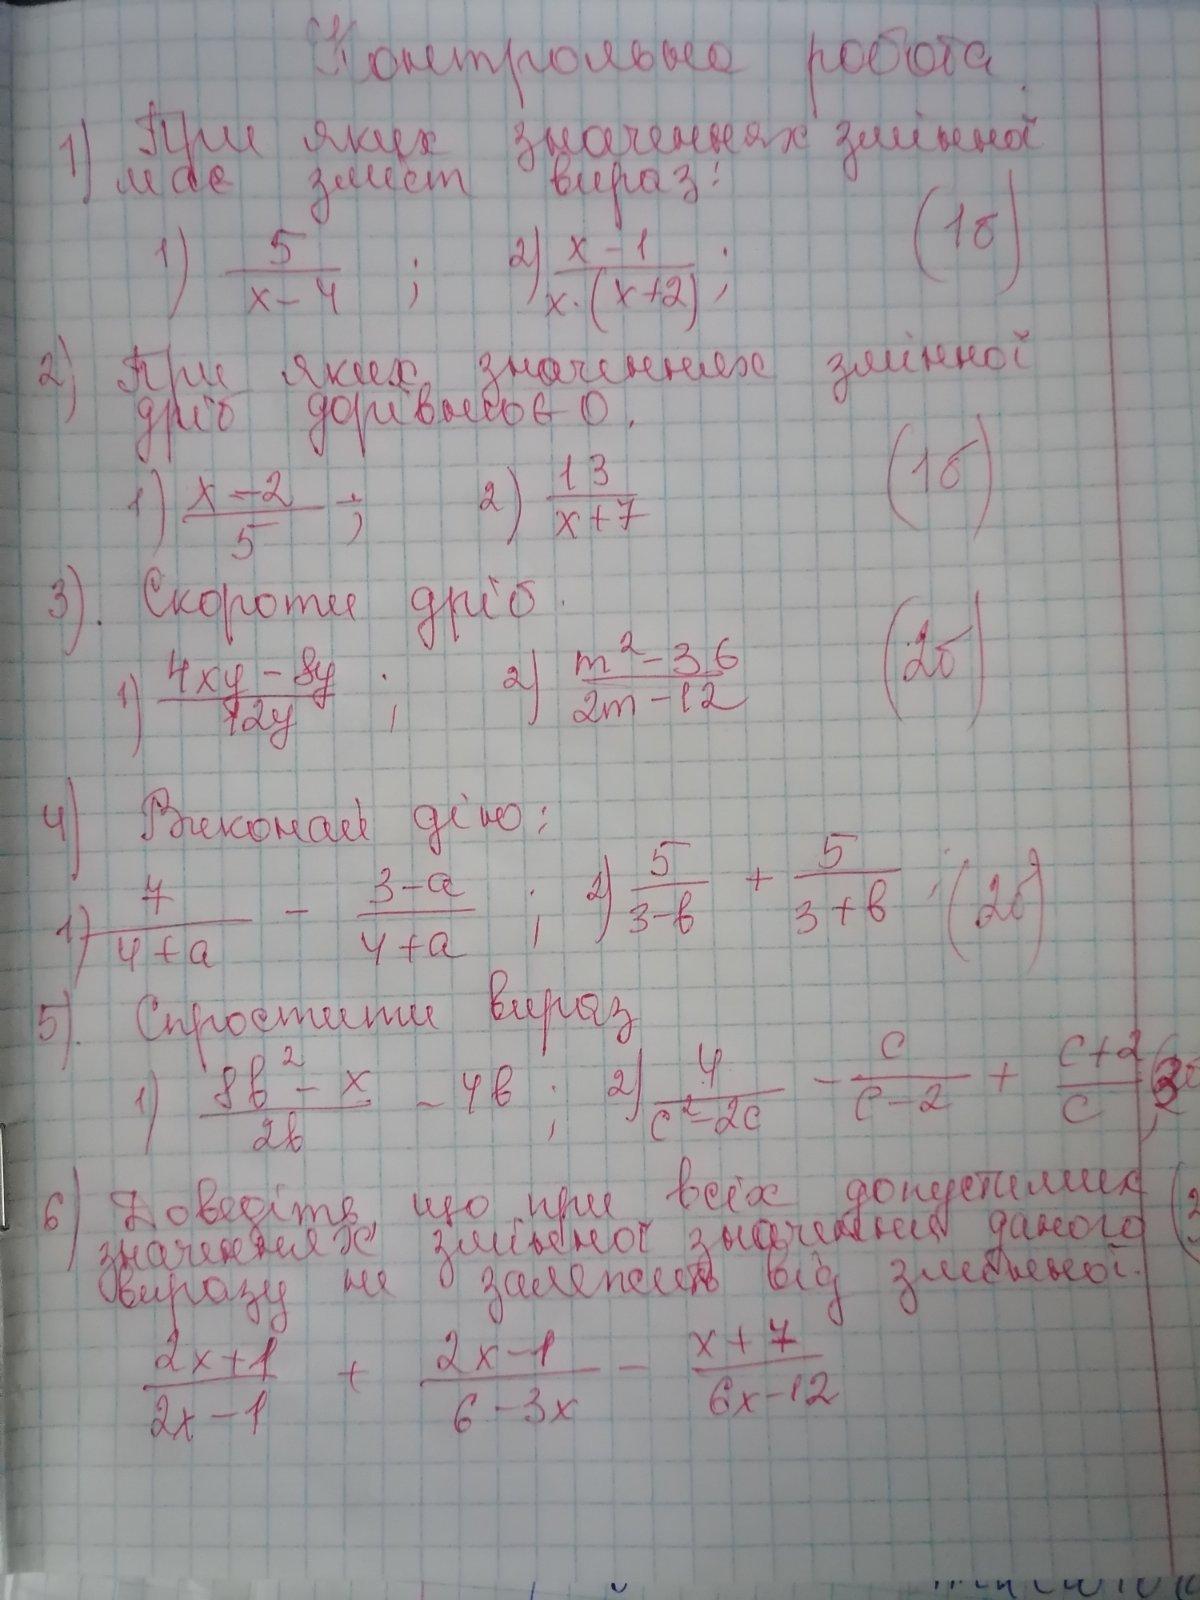 Контрольна робота.
1) При яких значеннях змінної
має зміст вираз:
1) 5/(x-4) ; 2) (x-1)/(x·(x+2)) ; (1б)
2) При яких значеннях змінної
дріб дорівнює 0.
1) (x-2)/5 ; 2) 13/(x+7) (1б)
3). Скороти дріб.
1) (4xy-8y)/(12y) ; 2) (m²-36)/(2m-12) (2б)
4) Виконай дію:
1) 7/(4+a) - (3-a)/(4+a) ; 2) 5/(3-b) + 5/(3+b) ; (2б)
5). Спростити вираз
1) (8b²-x)/(2b) - 4b ; 2) 4/(c²-2c) - c/(c-2) + (c+2)/c ;
6) Доведіть, що при всіх допустимих (2
значеннях змінної значення даного
виразу не залежить від змінної.
(2x+1)/(2x-1) + (2x-1)/(6-3x) - (x+7)/(6x-12)